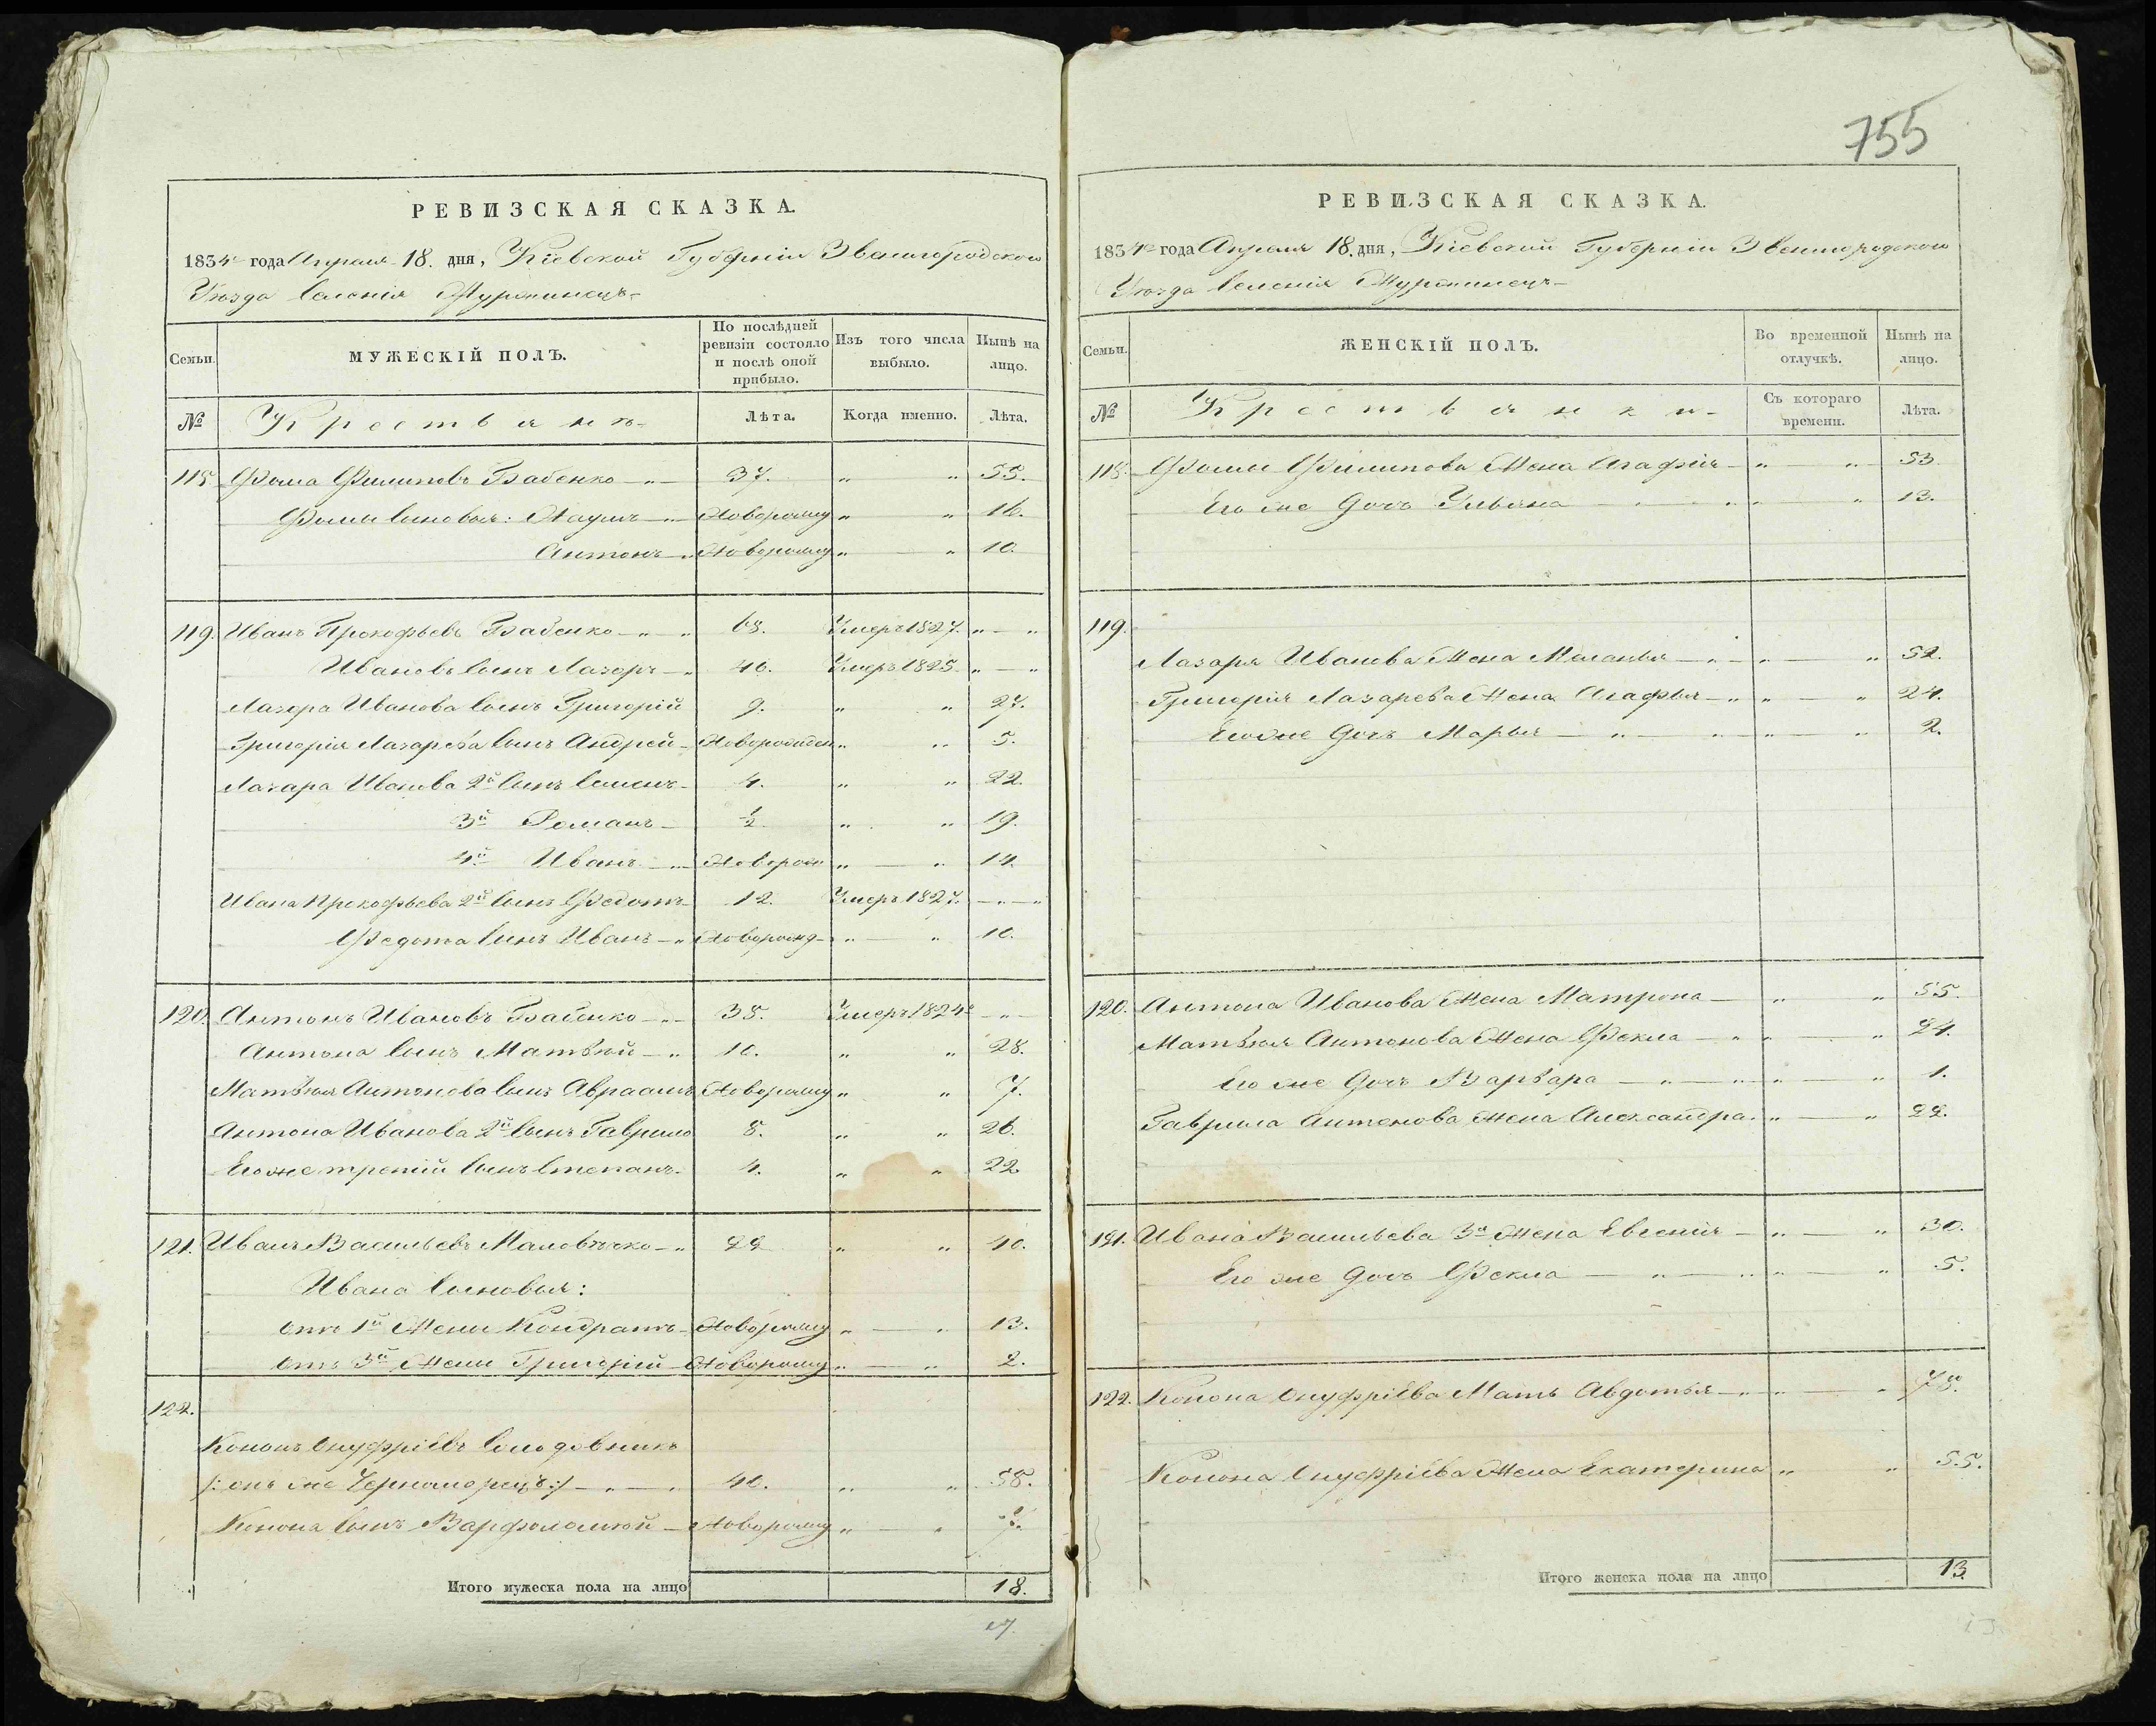 755
РЕВИЗСКАЯ СКАЗКА.
1834го года Апреля 18. дня, Кіевской Губерніи Звенигородского
Уезда Селенія Журжинецъ
Семьи. МУЖЕСКІЙ ПОЛЪ. По послѣдней ревизіи состояло и послѣ оной прибыло. Изъ того числа выбыло. Нынѣ на лицо.
№ Крестьянъ Лѣта. Когда именно. Лѣта.
118 Фома Филиповъ Бабенко 37. " " 55.
Фомы Сыновья: Наумъ Новорожд " " 16.
Антонъ Новорожд " " 10.
119. Иванъ Прокофьевъ Бабенко 68. Умеръ 1827. " "
Ивановъ Сынъ Лазарь 40. Умеръ 1825 " "
Лазаря Иванова Сынъ Григорій 9. " " 27.
Григорія Лазарева Сынъ Андрей Новорожден " " 5.
Лазара Иванова 2й Сынъ Семенъ 4. " " 22.
3й Романъ ½ " " 19.
4й Иванъ Новорож " " 14.
Ивана Прокофьева 2й Сынъ Федотъ 12. Умеръ 1827. "
Федота Сынъ Иванъ Новорожд " " 10.
120. Антонъ Ивановъ Бабенко 38. Умеръ 1824го "
Антона Сынъ Матвѣй 10. " " 28.
Матвѣя Антонова Сынъ Авраамъ Новорожд " " 7.
Антона Иванова 2й Сынъ Гаврило 8. " " 26.
Егоже третій Сынъ Степанъ 4. " " 22
121. Иванъ Васильевъ Маловичко 22 " " 40.
Ивана Сыновья:
отъ 1й Жены Кондратъ Новорожд " " 13.
отъ 3й Жены Григорій Новорожд " " 2.
122.
Кононъ Онуфріевъ Солодовникъ
/:онъ же Черноморецъ:/ 40. " " 58.
Конона Сынъ Варфоломей Новорожд " " 7.
Итого мужеска пола на лицо 18.
РЕВИЗСКАЯ СКАЗКА.
1834го года Апреля 18. дня, Кіевской Губерніи Звенигородского
Уезда Селенія Журжинецъ
Семьи. ЖЕНСКІЙ ПОЛЪ. Во временной отлучкѣ. Нынѣ на лицо.
№ Крестьянки Съ котораго времени. Лѣта.
118. Фомы Филипова Жена Агафія " " 53.
Его же Дочь Ульяна " " 13.
119.
Лазаря Иванова Жена Меланья " " 52.
Григорія Лазарева Жена Агафья " " 24.
Егоже Дочь Марья " " 2.
120. Антона Иванова Жена Матрона " " 55.
Матвѣя Антонова Жена Фекла " " 24.
Его же Дочь Варвара " " 1.
Гаврила Антонова Жена Александра " " 22.
121. Ивана Васильева 3я Жена Евгенія " " 30.
Его же Дочь Фекла " " 5.
122. Конона Онуфріева Мать Авдотья " " 78.
Конона Онуфріева Жена Екатерина " " 55.
Итого женска пола на лицо 13